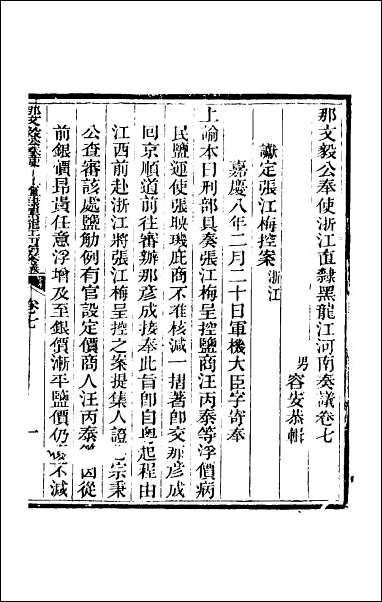 那文毅公奉使浙江直隸黑龍江河南奏議卷七
男 容安恭輯
讞定張江梅控案 浙江
嘉慶八年二月二十日軍機大臣字寄奉
上諭本日刑部具奏張江梅呈控鹽商汪丙泰等浮價病
民鹽運使張映璣庇商不准核減一摺著即交那彥成
回京順道前往審辦那彥成接奉此旨即自粵起程由
江西前赴浙江將張江梅呈控之案提集人證 宗秉
公查審該處鹽觔例有官設定價商人汪丙泰 因從
前銀價昂貴任意浮增及至銀價漸平鹽價仍 不減
卷七
一